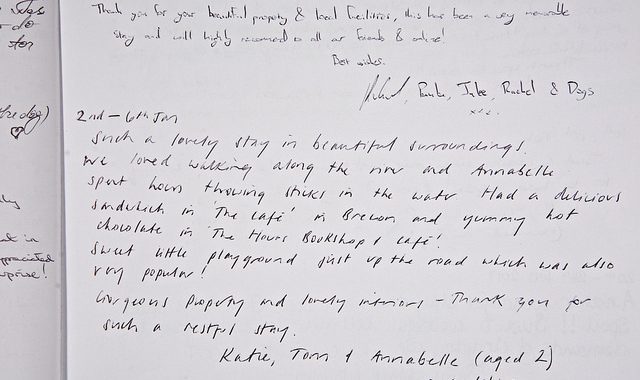 Thank you for your beautiful property & local facilities, this has been a very memorable
stay and will highly recommend to all our friends & online!
Best wishes.
Rachel & Dogs
x x x.
do
the dog)
♡
in
appreciated
surprise!
2nd - 6th Jan
Such a lovely stay in beautiful surroundings.
We loved walking along the river and Annabelle
spent hours throwing sticks in the water Had a delicious
sandwich in 'The Café' in Brecon and yummy hot
chocolate in 'The Hours Bookshop & café'.
Sweet little playground just up the road which was also
very popular!
Gorgeous Property and lovely interiors - Thank you for
such a restful stay.
Katie, Tom & Annabelle (aged 2)